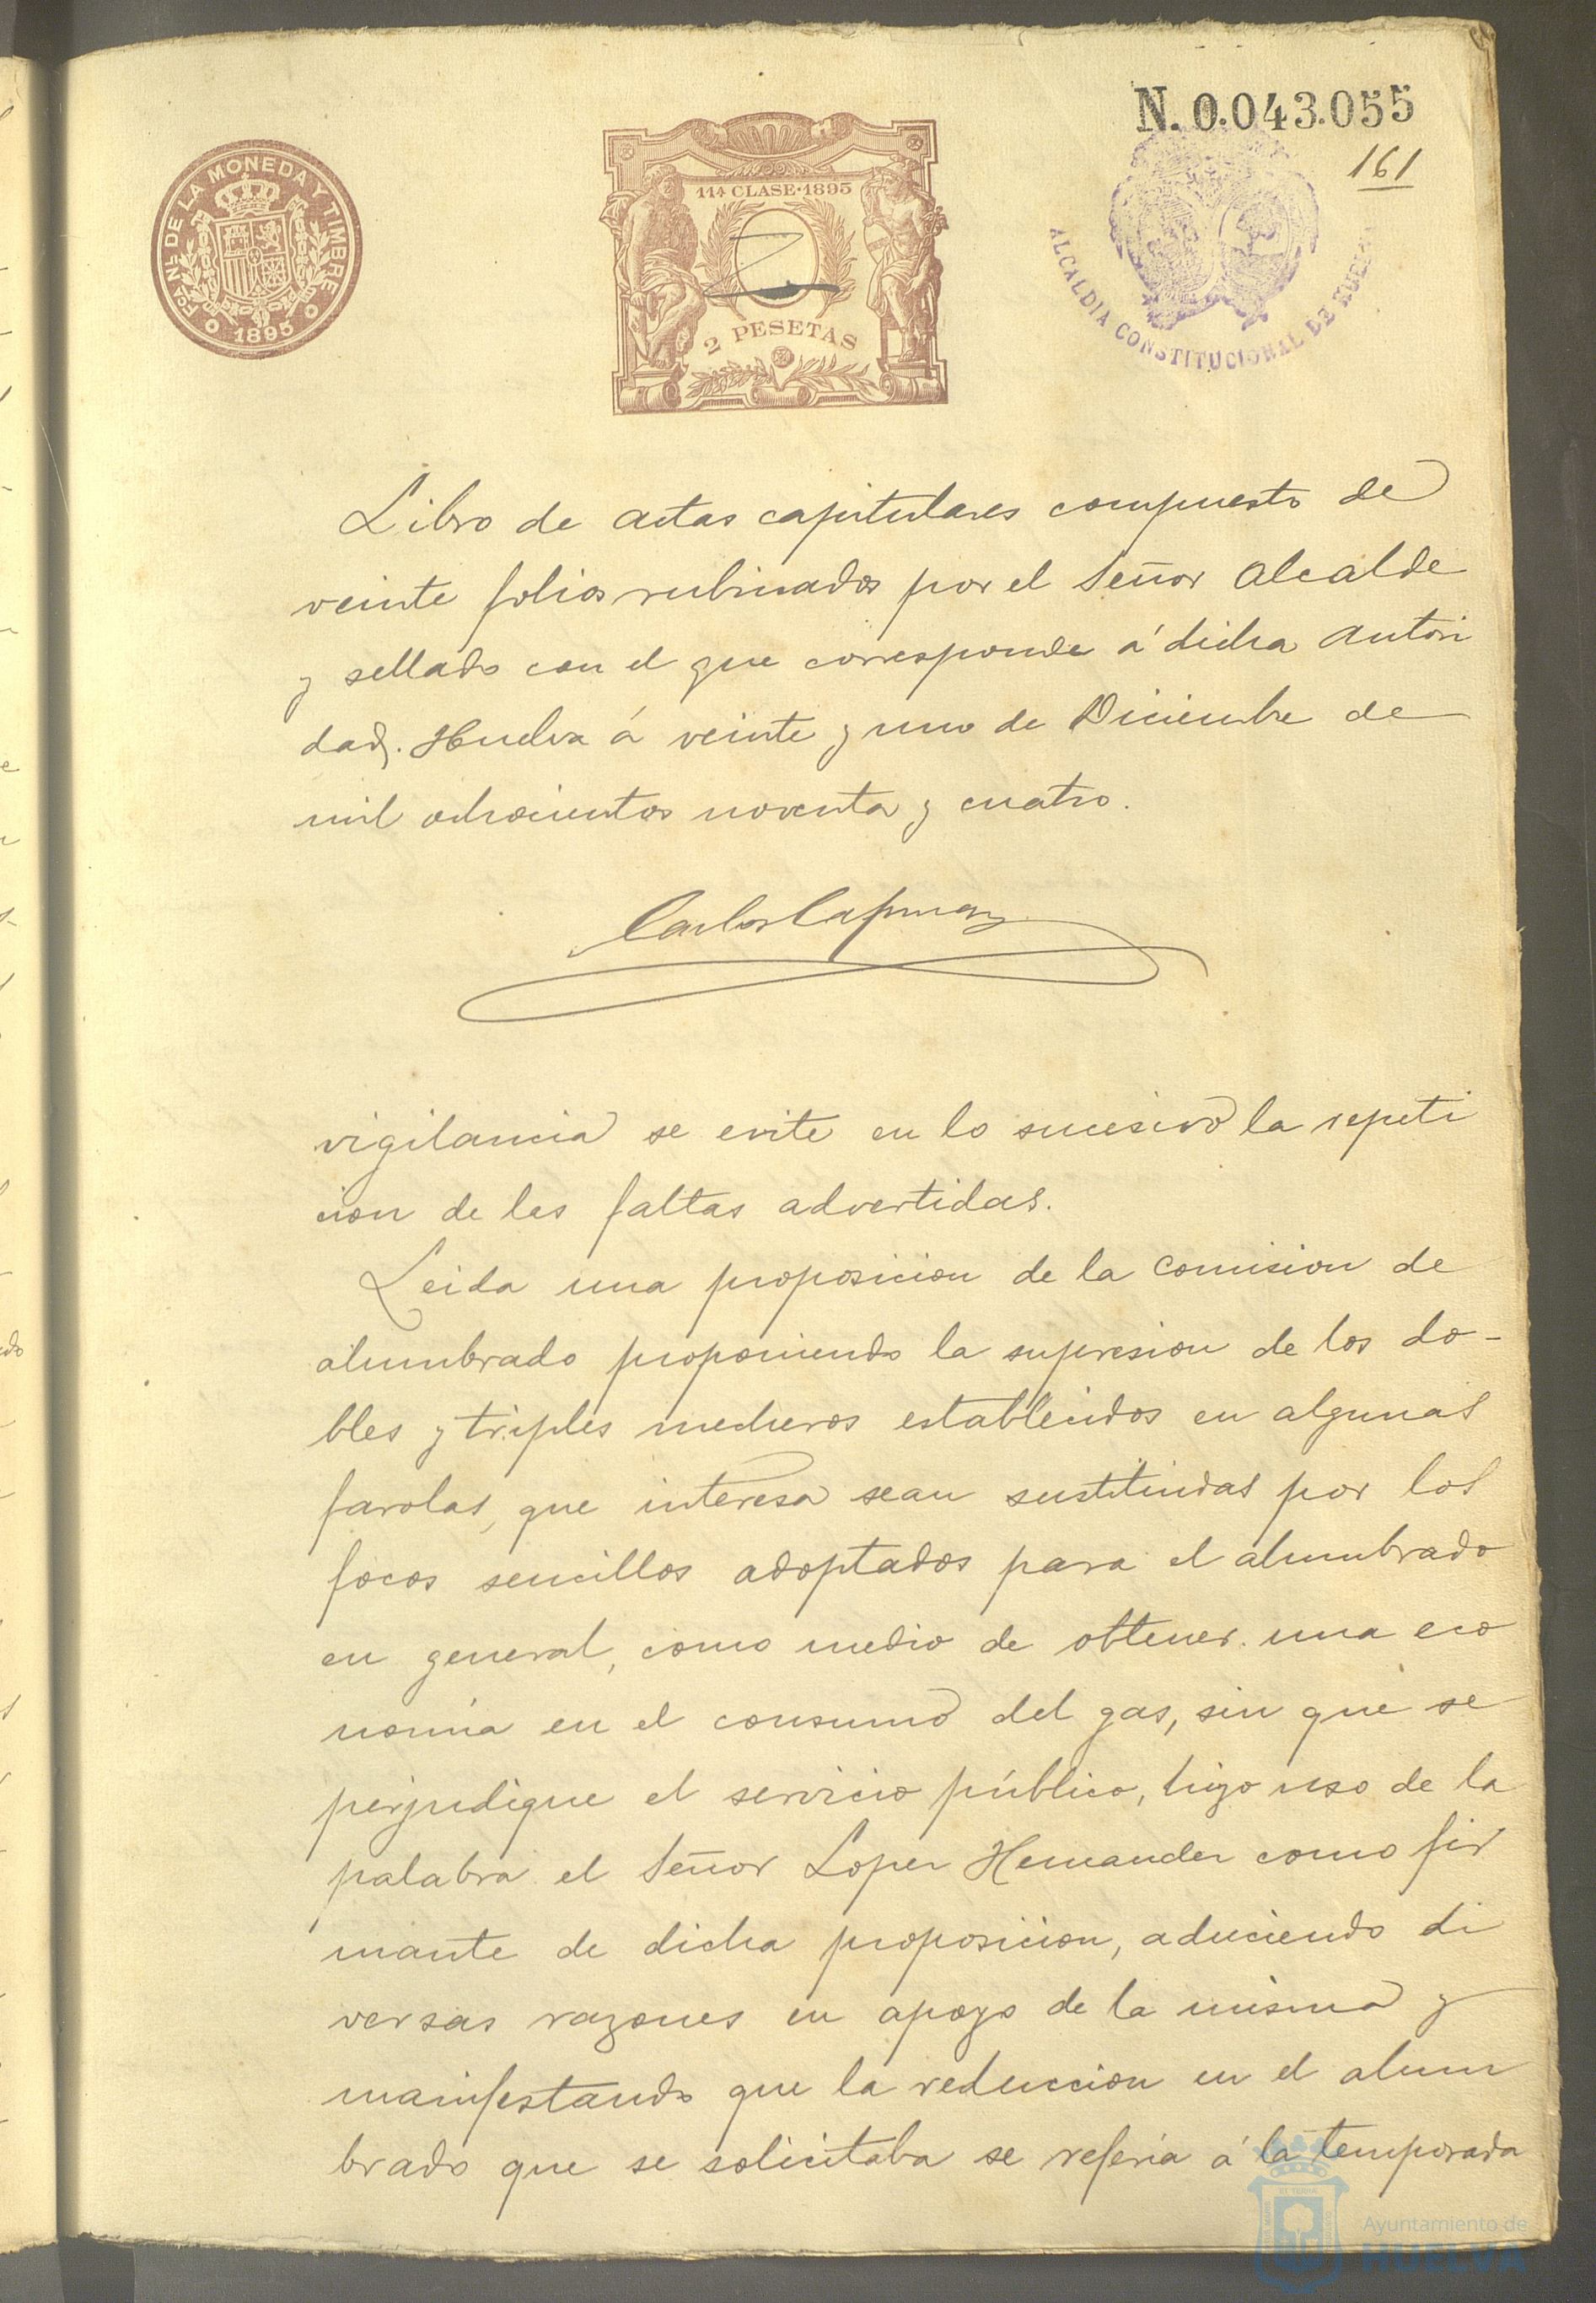 N. 0.043.055
161
FCA. NL. DE LA MONEDA Y TIMBRE
1895
11ª CLASE·1895
2 PESETAS
ALCALDIA CONSTITUCIONAL DE HUELVA
Libro de actas capitulares compuesto de
veinte folios rubricados por el Señor Alcalde
y sellado con el que corresponde á dicha Autori
dad. Huelva á veinte y uno de Diciembre de
mil ochocientos noventa y cuatro.
Carlos
vigilancia se evite en lo sucesivo la repeti
cion de las faltas advertidas.
Leida una proposicion de la Comision de
alumbrado proponiendo la supresion de los do-
bles y triples mecheros establecidos en algunas
farolas, que interesa sean sustituidas por los
focos sencillos adoptados para el alumbrado
en general, como medio de obtener una eco
nomia en el consumo del gas, sin que se
perjudique el servicio público, hizo uso de la
palabra el Señor Lopez Hernandez como fir
mante de dicha proposicion, aduciendo di
versas razones en apoyo de la misma y
manifestando que la reduccion en el alum
brado que se solicitaba se referia á la temporada
Ayuntamiento de
HUELVA